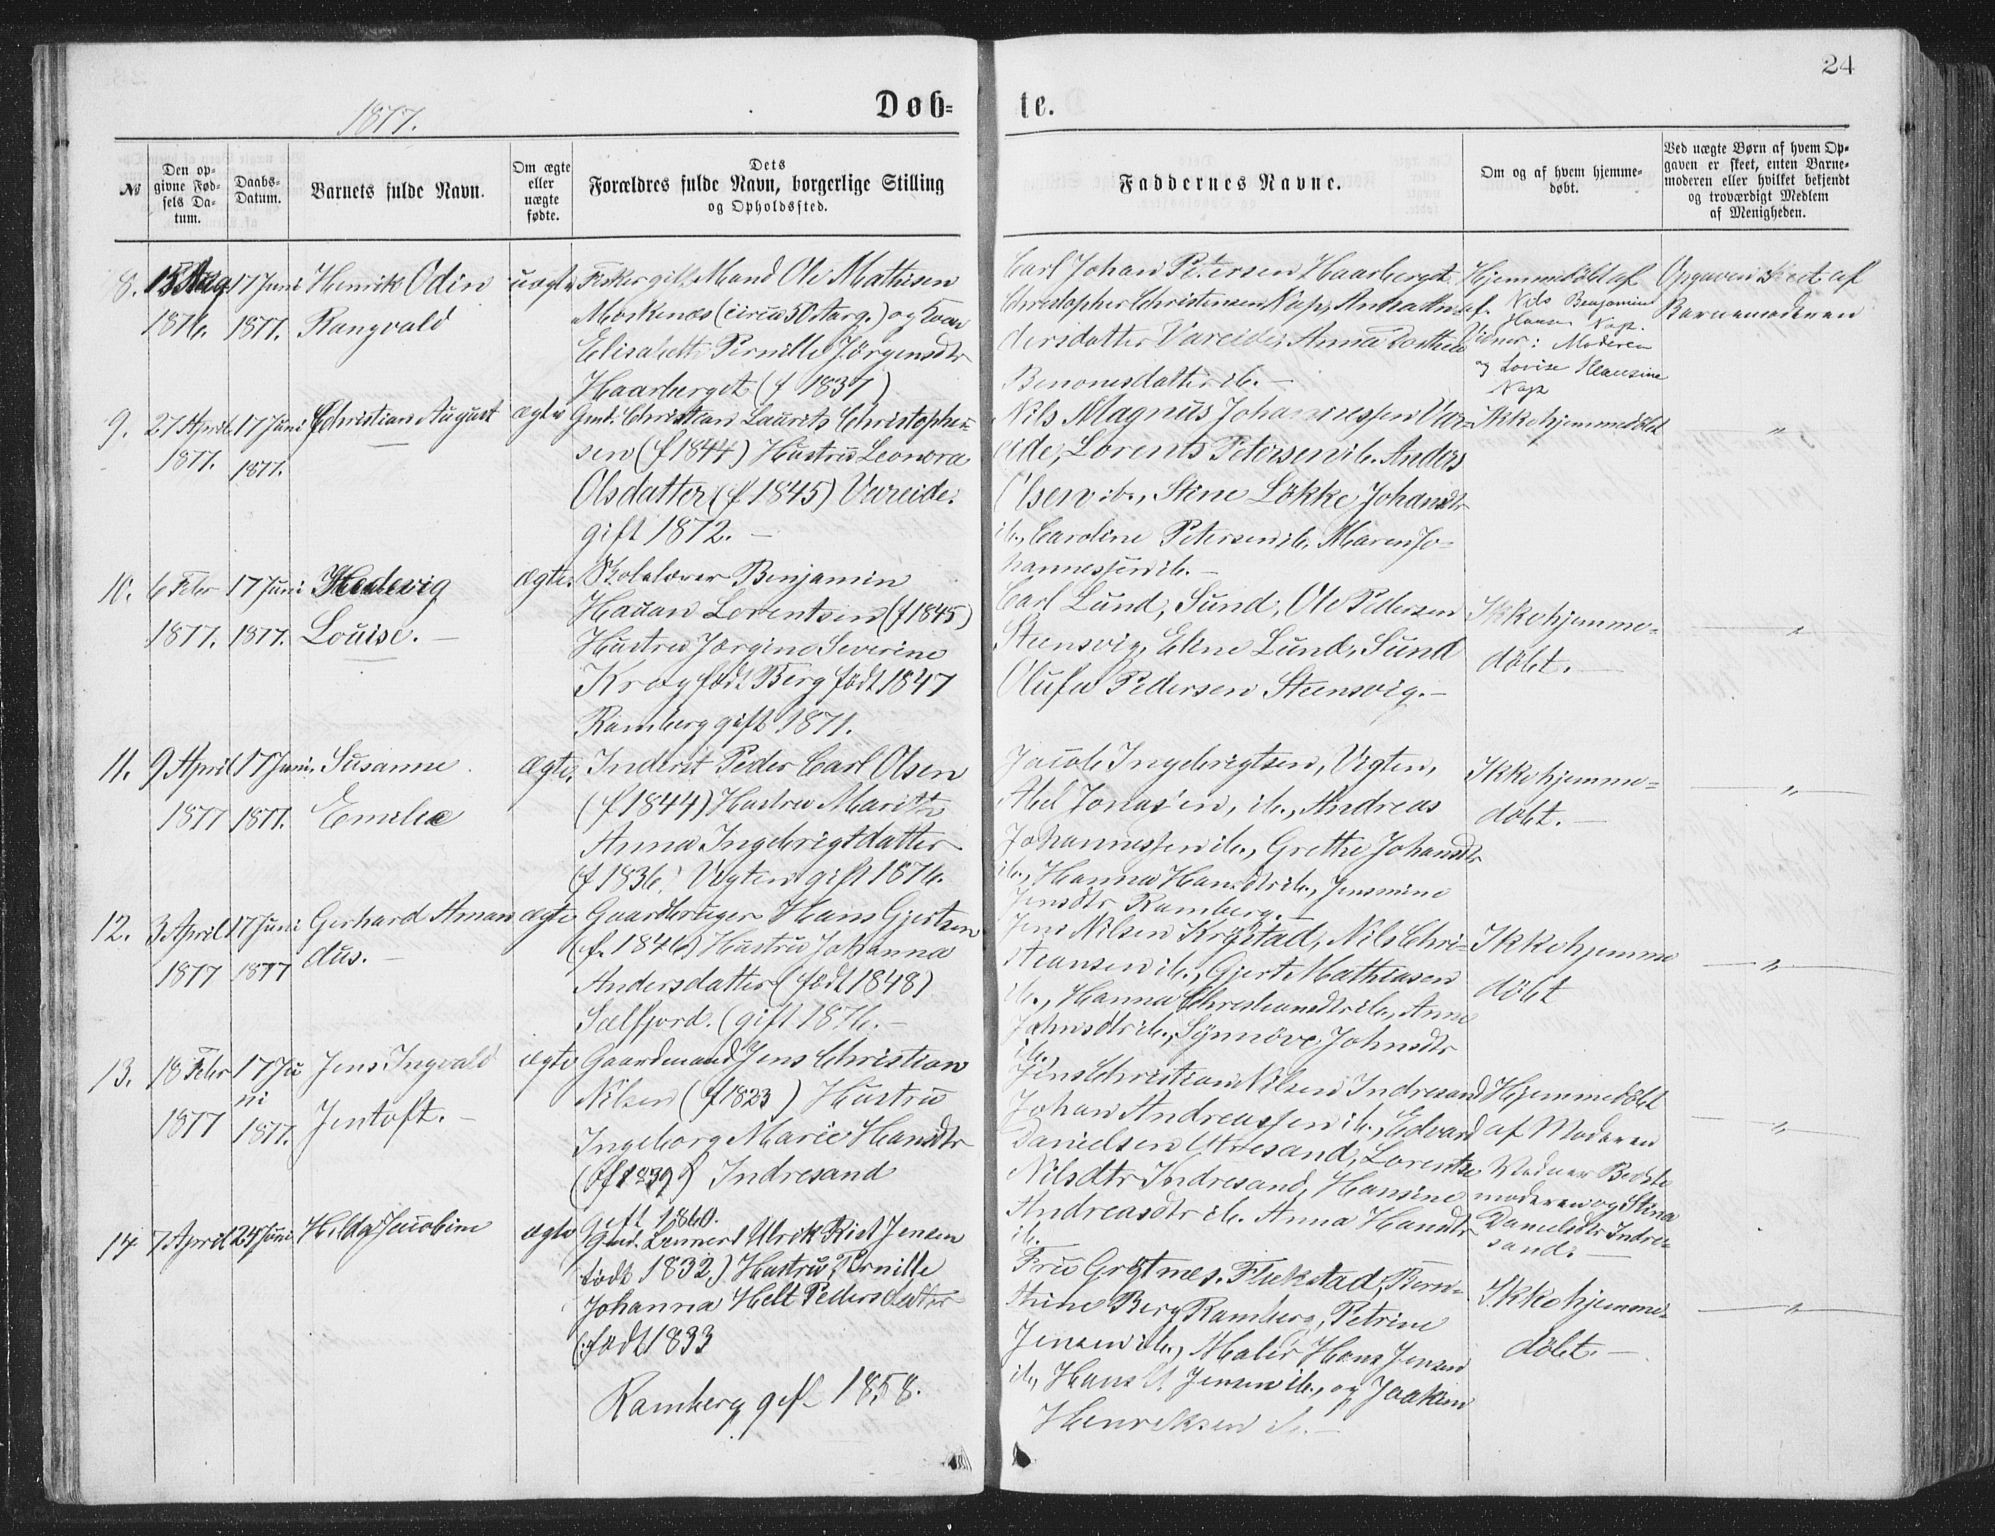 24
1877.
Døb-
te.
№
Den op-
givne Fød-
sels Da-
tum.
Daabs-
Datum.
Barnets fulde Navn.
Om ægte
eller
uægte
fødte.
Dets
Forældres fulde Navn, borgerlige Stilling
og Opholdssted.
Faddernes Navne.
Om og af hvem hjemme-
døbt.
Ved uægte Børn af hvem Op-
gaven er skeet, enten Barne-
moderen eller hvilket bekjendt
og troværdigt Medlem
af Menigheden.
8.
15 Aug
1876.
17 Juni
1877.
Henrik Odin
Rangvald
uægte
Fisker gift Mand Ole Mathisen
Moskenæs (circa 50 Aarg.) og
Elisabeth Pernille Jörgensdtr
Haarberget (f 1837)
Carl Johan Petersen Haarberget
Christopher Christensen Nap, Andrea An-
dersdatter Vareide, Anna Dorthea
Benonisdatter ib. —
Hjemmedöbt af
Nils Benjamin
Hansen Nap.
Vidner: Moderen
og Lovise Hansine
Nap
Opgaven skeet af
Barnemoderen
9.
27 April
1877.
17 Juni
1877.
Christian August
ægte
Gmd. Christian Laurits Christopher-
sen (f 1844) Hustru Leonora
Olsdatter (f 1845) Vareide.
gift 1872. —
Nils Magnus Johannessen Var-
eide, Lorents Petersen ib. Anders
Olsen ib., Stine Lökke Johansdtr
ib., Caroline Petersen ib., Maren Jo-
hannessen ib. —
Ikke hjemmedöbt
"
10.
6 Febr
1877.
17 Juni
1877.
Hedevig
Louise. —
ægte.
Skolelærer Benjamin
Hauan Lorentsen (f 1845)
Hustru Jørgine Severine
Krog født Berg født 1847
Ramberg gift 1871.
Carl Lund, Sund, Ole Pedersen
Steensvig, Elene Lund, Sund
Olufa Pedersen Steensvig. —
Ikke hjemme-
döbt. —
"
11.
9 April
1877
17 Juni
1877.
Susanne
Emilie
ægte.
Inderst Peder Carl Olsen
(f 1844) Hustru Marith
Anna Ingebrigtdatter
(f 1836. Vigten gift 1876.
Jacob Ingebrigtsen, Vigten,
Abel Jonassen, ib., Andreas
Johannessen ib., Grethe Johansdtr
ib., Hanna Hansdtr ib., Jensmine
Jensdtr Ramberg. —
Ikke hjemme-
döbt. —
"
12.
3 April
1877
17 Juni
1877
Gerhard Aman
dus. —
ægte
Gaardbruger Hans Gjertsen
(f. 1846) Hustru Johanna
Andersdatter (född 1848)
Selfjord. (gift 1876. —
Jens Nilsen Krystad, Nils Chri-
stiansen ib., Gjert Mathiasen
ib., Hanna Christiansdtr ib., Anne
Johnsdtr ib., Synnöve Johnsdtr
ib.
Ikke hjemme
döbt
"
13.
18 Febr
1877
17 Ju
ni
1877.
Jens Ingvald
Jentoft. —
ægte
Gaardmand Jens Christian
Nilsen (f 1823) Hustru
Ingeborg Marie Hansdtr
(f 1839) Indresand
gift 1860.
Jens Christian Nilsen Indresand
Johan Andreassen ib., Edvard
Danielsen Ytresand, Lorentse
Nilsdtr Indresand, Hansine
Andreasdtr ib. Anna Hansdtr
ib.
Hjemmedöbt
af Moderen
Vidner Bedste
moderen og Stina
Danielsdtr Indre-
sand. —
"
14
7 April
24 Juni
Hilda Jacobine
ægte
Gmd. Lennert Ulrik Rist Jensen
födt 1832) Hustru Pernille
Johanna Helt Pedersdatter
(född 1833
Ramberg gift 1858.
Fru Grytnes, Flakstad, Bern-
thine Berg Ramberg, Petrine
Jensen ib., Maler Hans Jensen
ib., Hans U. Jensen ib., og Joakim
Henriksen ib. —
Ikke hjemme-
döbt. —
"